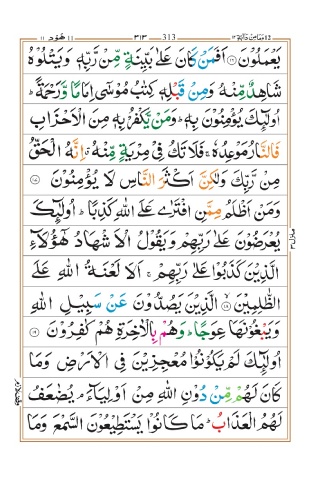 هُوْد ١١ ٣١٣ 313 وَمَا مِنْ دَآبَّةٍ ١٢
يَعْمَلُوْنَ ﴿١٦﴾ اَفَمَنْ كَانَ عَلٰى بَيِّنَةٍ مِّنْ رَّبِّهٖ وَيَتْلُوْهُ
شَاهِدٌ مِّنْهُ وَمِنْ قَبْلِهٖ كِتٰبُ مُوْسٰٓى اِمَامًا وَّرَحْمَةً ؕ
اُولٰٓئِكَ يُؤْمِنُوْنَ بِهٖ ؕ وَمَنْ يَّكْفُرْ بِهٖ مِنَ الْاَحْزَابِ
فَالنَّارُ مَوْعِدُهٗ ۚ فَلَا تَكُ فِىْ مِرْيَةٍ مِّنْهُ ۗ اِنَّهُ الْحَقُّ
مِنْ رَّبِّكَ وَلٰكِنَّ اَكْثَرَ النَّاسِ لَا يُؤْمِنُوْنَ ﴿١٧﴾
وَمَنْ اَظْلَمُ مِمَّنِ افْتَرٰى عَلَى اللّٰهِ كَذِبًا ؕ اُولٰٓئِكَ
يُعْرَضُوْنَ عَلٰى رَبِّهِمْ وَيَقُوْلُ الْاَشْهَادُ هٰٓؤُلَآءِ
الَّذِيْنَ كَذَبُوْا عَلٰى رَبِّهِمْ ۚ اَلَا لَعْنَةُ اللّٰهِ عَلَى
الظّٰلِمِيْنَ ﴿١٨﴾ الَّذِيْنَ يَصُدُّوْنَ عَنْ سَبِيْلِ اللّٰهِ
وَيَبْغُوْنَهَا عِوَجًا ؕ وَهُمْ بِالْاٰخِرَةِ هُمْ كٰفِرُوْنَ ﴿١٩﴾
اُولٰٓئِكَ لَمْ يَكُوْنُوْا مُعْجِزِيْنَ فِى الْاَرْضِ وَمَا
كَانَ لَهُمْ مِّنْ دُوْنِ اللّٰهِ مِنْ اَوْلِيَآءَ ۘ يُضٰعَفُ
لَهُمُ الْعَذَابُ ؕ مَا كَانُوْا يَسْتَطِيْعُوْنَ السَّمْعَ وَمَا